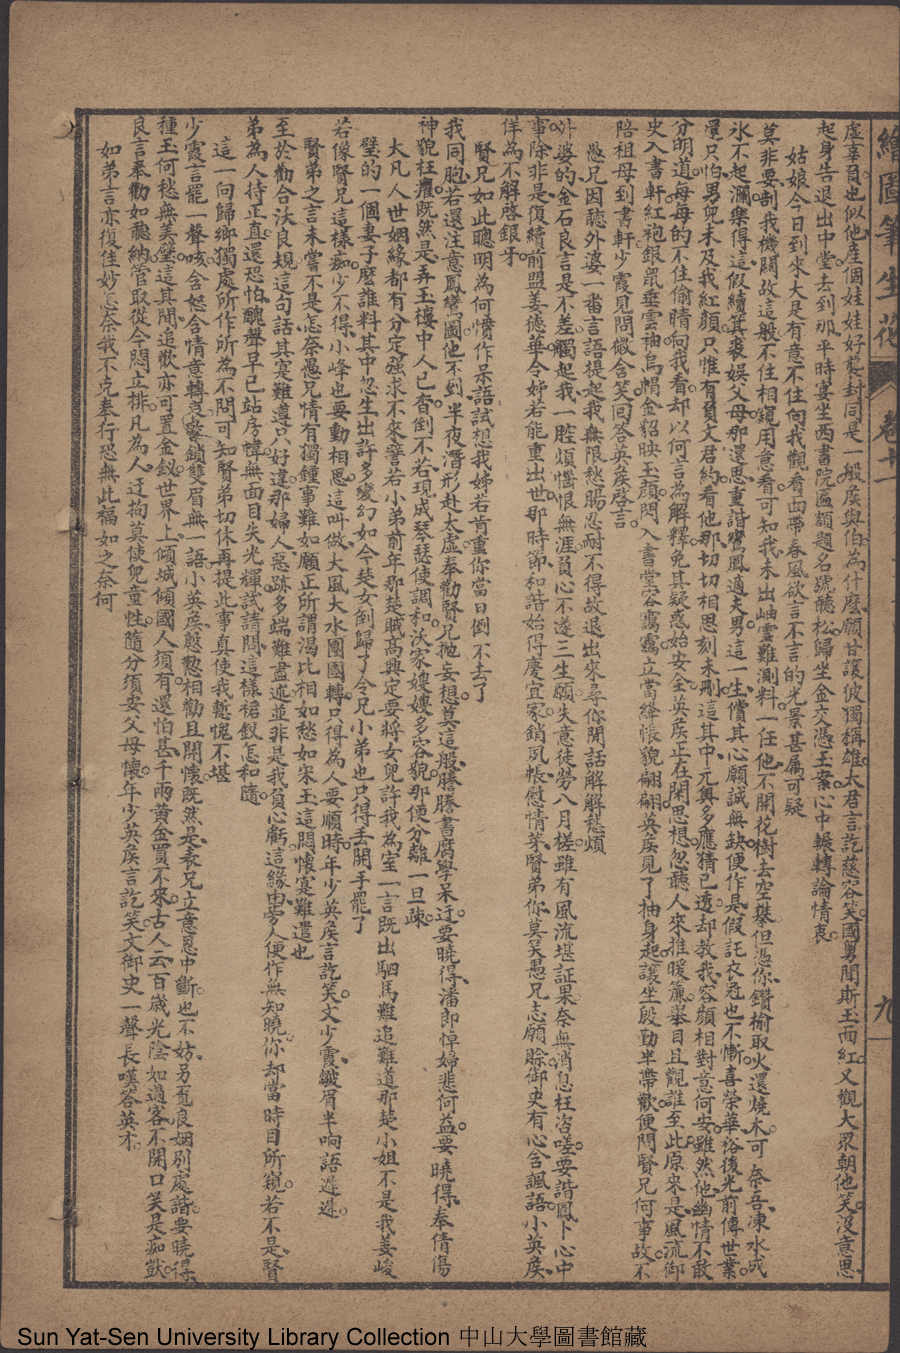 繪圖筆生花
卷十一
九
虛辜負也似他產個娃娃好襲封同是一般矦與伯為什麽願甘讓彼獨稱雄太君言訖慈容笑國舅聞斯玉面紅又觀大眾朝他笑沒意思
起身告退出中堂去到那平時宴坐西書院區額題名號聽松歸坐金交憑玉案心中輾轉論情衷
姑娘今日到來大是有意不住向我觀看面帶春風欲言不言的光景甚屬可疑
莫非要剖我機關故這般不住相窺用意看可知我未出岫雲難測料一任他不開花樹去空攀但憑你鑽榆取火還燒木可奈吾凍水成
氷不起瀾樂得這假續箕裘娛父母那還思重諧鸞鳳適夫男這一生償其心願誠無缺便作是假託衣冠也不慚喜榮華裕後光前傳世業
還只怕男兒未及我紅顏只惟有負文君約看他那切切相思刻未刪這其中元奧多應猜已透却教我容顏相對意何安雖然他幽情不敢
分明道每每的不住偷睛向我看却以何言為解釋免其疑惑始安全英矦正在閑思想忽聽人來推暖簾舉目且觀誰至此原來是風流御
史入書軒紅袍銀鼠垂雲袖烏帽金貂映玉顏門入書堂容靄靄立當絳帳貌翩翩英矦見了抽身起讓坐殷勤半帶歡便問賢兄何事故不
陪祖母到書軒少霞見問微含笑回答英矦啓言
愚兄因聽外婆一畨言語提起我無限愁腸忍耐不得故退出來尋你閒話解解愁煩
外婆的金石良言是不差觸起我一腔煩惱恨無涯負心不遂三生願失意徒勞八月槎雖有風流堪証果奈無消息枉咨嗟要諧鳳卜心中
事除非是復續前盟姜德華令姊若能重出世那時節和諧始得慶宜家銷夙帳慰情芽賢弟你莫笑愚兄志願賒御史有心含諷語小英矦
佯為不解啓銀牙
賢兄如此聰明為何憒作呆語試想我姊若肯重你當日倒不去了
我同胞若還注意鳳鸞圖他不到半夜潛形赴太虛奉勸賢兄抛妄想莫這般騰騰書腐學呆迂要曉得潘郎悼婦悲何益要曉得奉倩傷
神貌枉癯既然是弄玉樓中人已杳倒不若現成琴瑟使調和沃家嫂嫂多容貌那便分離一旦疎
大凡人世姻緣都有分定強求不來譬若小弟前年那楚贓高興定要將女兒許我為室一言既出駟馬難追難道那楚小姐不是我姜峻
壁的一個妻子麽誰料其中忽生出許多變幻如今楚女倒歸了令兄小弟也只得丟開手罷了
若像賢兄這樣痴少不得小峰也要動相思這叫做大風大水團團轉只得為人要順時年少英矦言訖笑文少霞皺眉半响語遲遲
賢弟之言未嘗不是怎奈愚兄情有獨鍾事難如願正所謂渴比相如愁如宋玉這悶懷寔難遣也
至於勸合沃良規這句話其寔難遵只好違那婦人惡跡多端難盡述並非是我負心虧這緣由旁人便作無知曉你却當時目所窺若不是賢
弟為人持正直還恐怕醜聲早已玷房幃無面目失光輝試請問這樣裙釵怎和隨
這一向歸鄉獨處所作所為不問可知賢弟切休再提此事真使我慙愧不堪
少霞言罷一聲咳含怒含情意轉哀鎖雙眉無一語小英矦慇懃相勸且開懷既然是表兄立意恩中斷也不妨另覓良姻別處諧要曉得
種玉何愁無美璧這其間追歡亦可置金釵世界上傾城傾國人須有還怕甚千兩黃金買不來古人云百歲光陰如過客不開口笑是痴獃
良言奉勸如聽納管取從今悶立排凡為人迂拘莫使兒童性隨分須安父母懷年少英矦言訖笑文御史一聲長嘆答英才
如弟言亦復佳妙怎奈我不克奉行恐無此福如之奈何
Sun Yat-Sen University Library Collection 中山大學圖書館藏